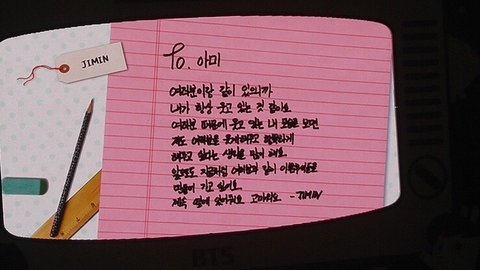 JIMIN
To. 아미
여러분이랑 같이 있으니까
내가 항상 웃고 있는 것 같아요
여러분 때문에 웃고 있는 내 모습을 보면
저도 여러분을 웃게해주고 행복하게
해주고 싶다는 생각을 많이 해요.
앞으로도 지금처럼 여러분과 같이 이
믿음이 가고 있어요.
계속 옆에 있어줘요 고마워요 -JIMIN
BTS